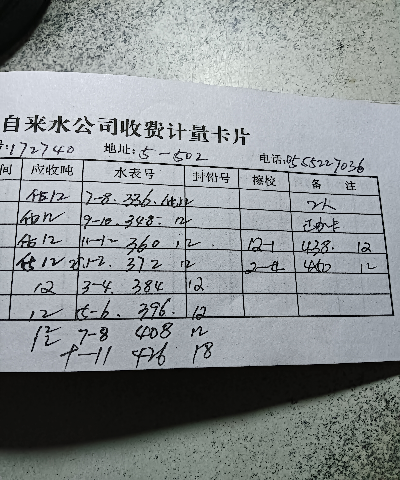 自来水公司收费计量卡片
号:172740 地址:5-502 电话:05555227036
间 应收吨 水表号 封铅号 擦校 备 注
估12 7-8. 336. 估12 2人
估12 9-10. 348. 12 卡
估12 11-12 360 12 12-1 438. 12
估12 1-2. 372 12 2-4 450 12
12 3-4. 384 12
12 5-6. 396. 12
12 7-8 408 12
十-11 426 18